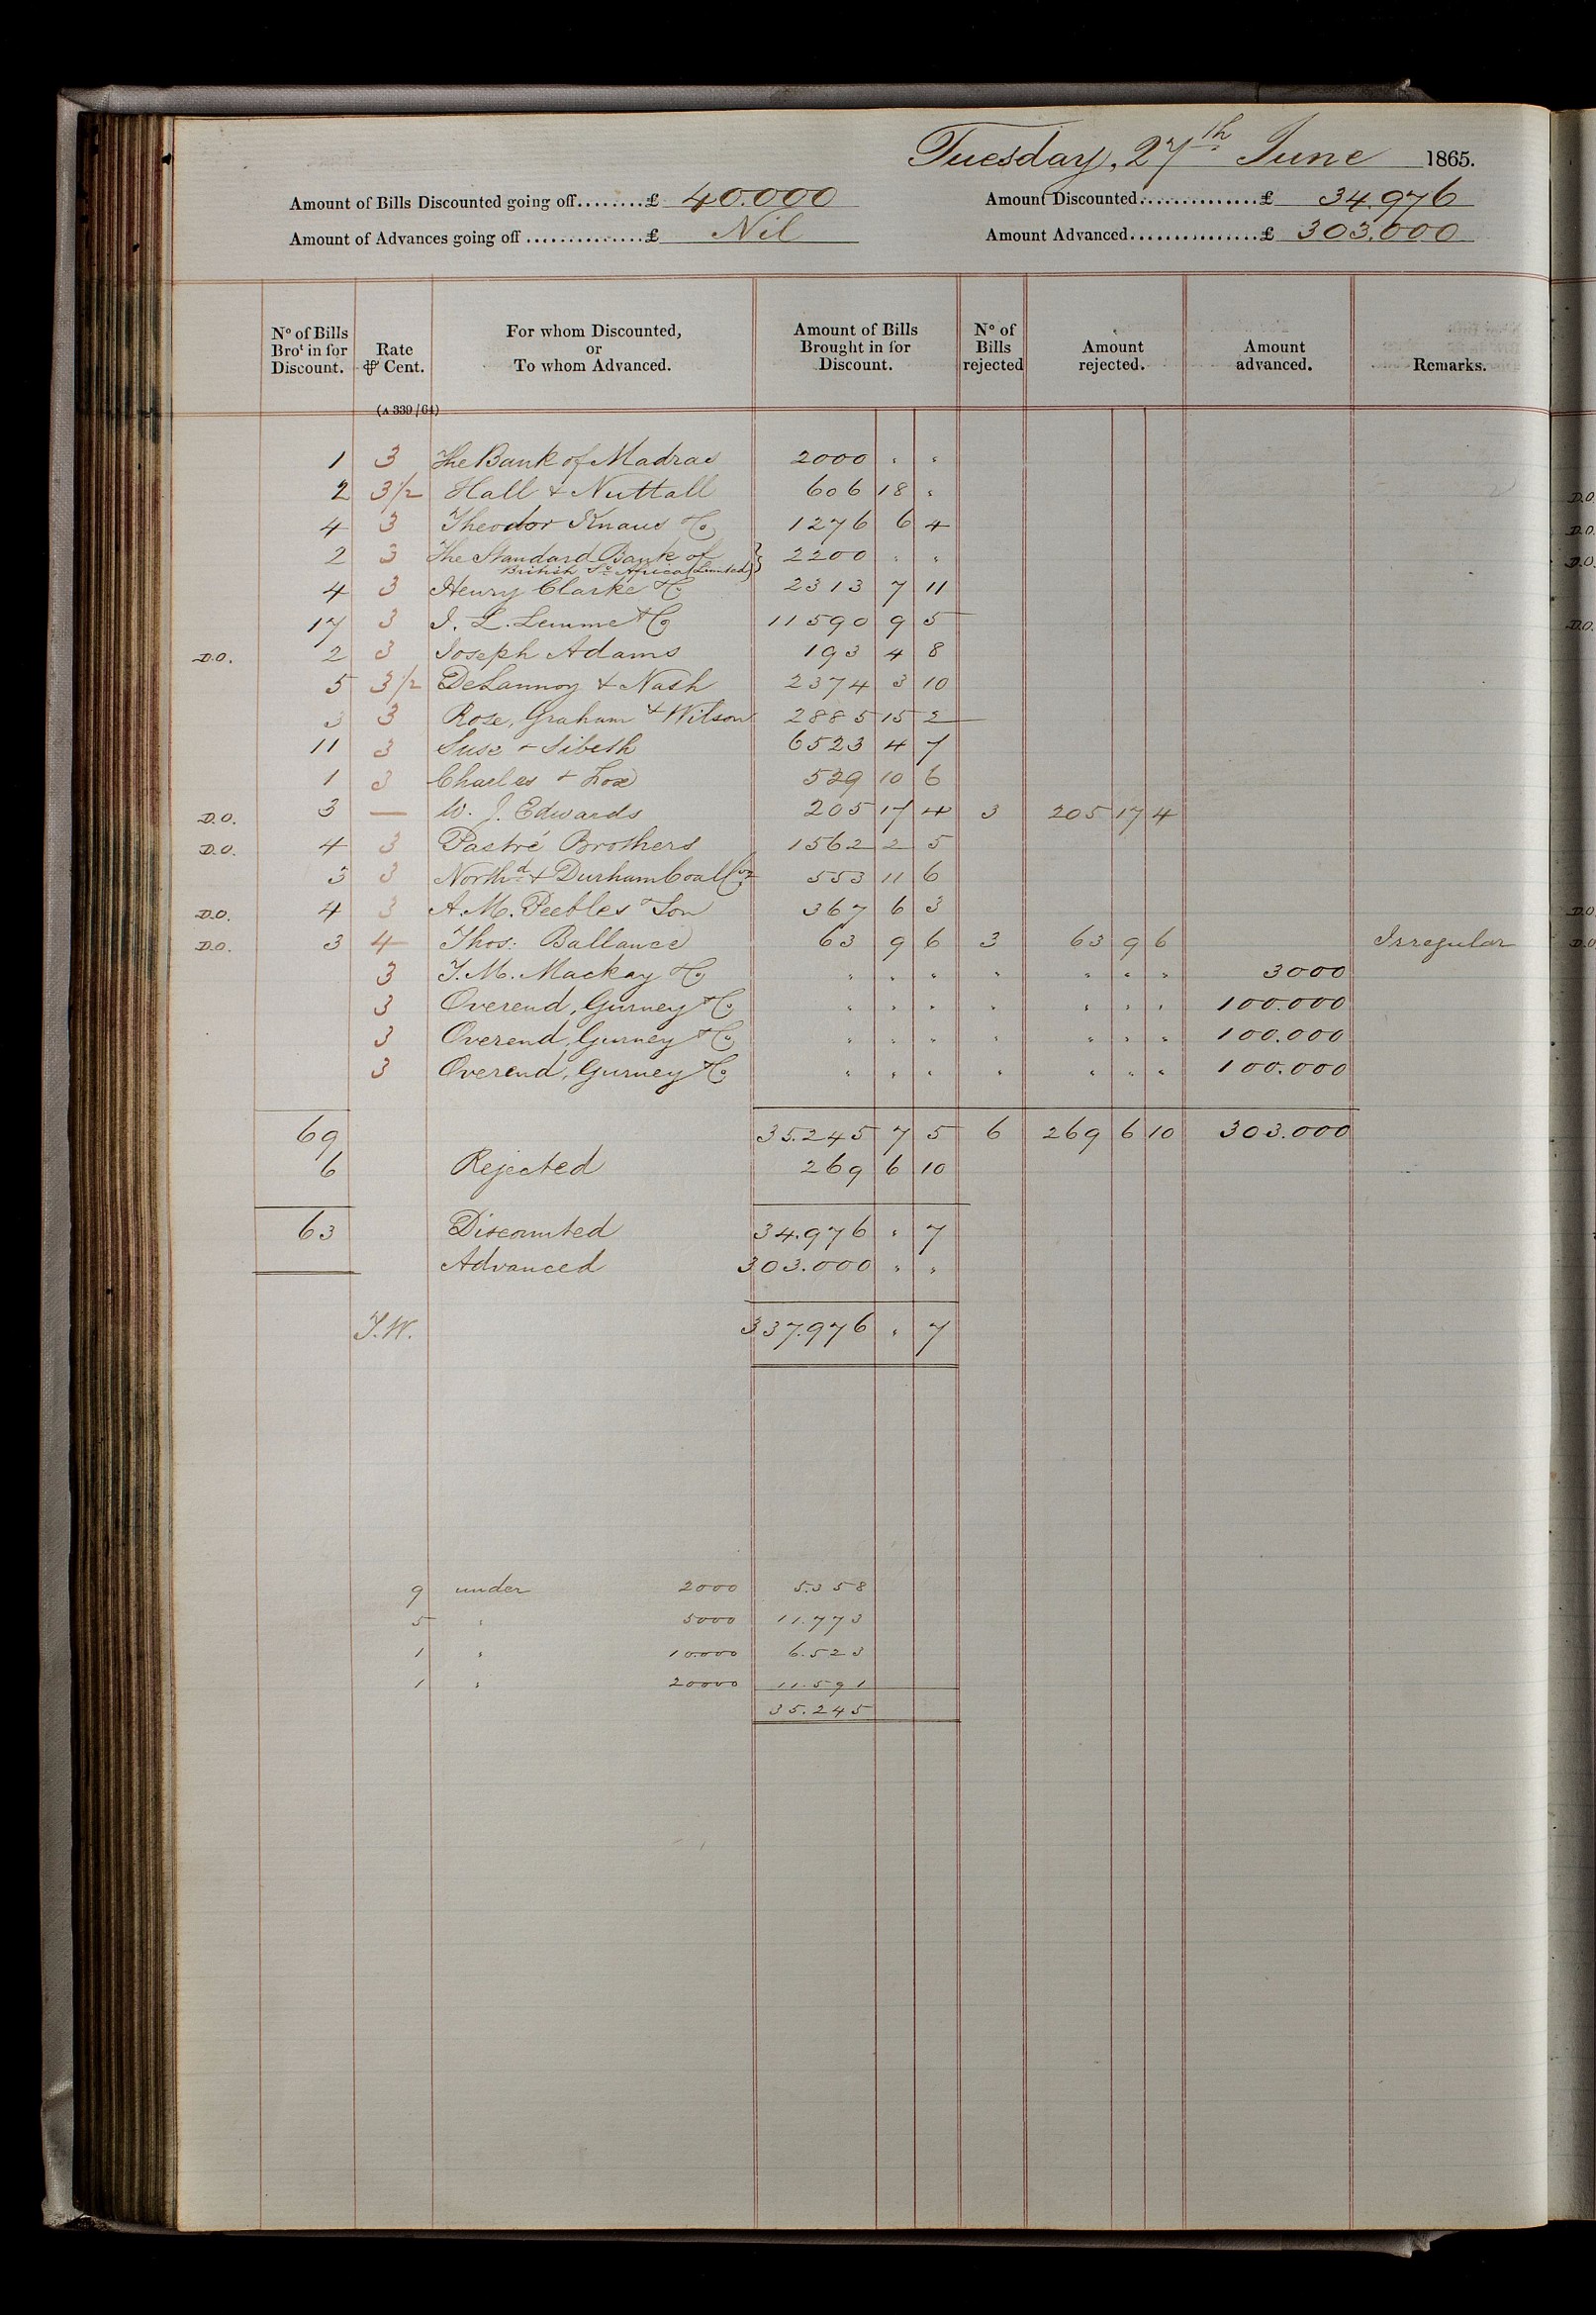 Tuesday, 27th June 1865.
Amount of Bills Discounted going off........£ 40.000 Amount Discounted..............£ 34.976
Amount of Advances going off ..............£ Nil Amount Advanced................£ 303.000
No of Bills Brot in for Discount. Rate ⅌ Cent. For whom Discounted, or To whom Advanced. Amount of Bills Brought in for Discount. No of Bills rejected Amount rejected. Amount advanced. Remarks.
(A 339/64)
1 3 The Bank of Madras 2000 " "
2 3 1/2 Hall & Nuttall 606 18 "
4 3 Theodor Knaus & Co 1276 6 4
2 3 The Standard Bank of British So Africa (Limited) } 2200 " "
4 3 Henry Clarke & Co 2313 7 11
17 3 I. L. Lemme & Co 11590 9 5
D.O. 2 3 Joseph Adams 193 4 8
5 3 1/2 DeLannoy & Nash 2374 3 10
3 3 Rose, Graham & Wilson 2885 15 2
11 3 Suse & Sibeth 6523 4 7
1 3 Charles & Fox 529 10 6
D.O. 3 — W. J. Edwards 205 17 4 3 205 17 4
D.O. 4 3 Pastré Brothers 1562 2 5
3 3 Northd & Durham Coal Coy 553 11 6
D.O. 4 3 A. M. Peebles & Son 367 6 3
D.O. 3 4 Thos: Ballance 63 9 6 3 63 9 6 Irregular
3 T. M. Mackay & Co " " " " " " " 3000
3 Overend, Gurney & Co " " " " " " " 100.000
3 Overend, Gurney & Co " " " " " " " 100.000
3 Overend, Gurney & Co " " " " " " " 100.000
69 35.245 7 5 6 269 6 10 303.000
6 Rejected 269 6 10
63 Discounted 34.976 " 7
Advanced 303.000 " "
T.W. 337.976 " 7
9 under 2000 5.358
5 " 5000 11.773
1 " 10.000 6.523
1 " 20000 11.591
35.245